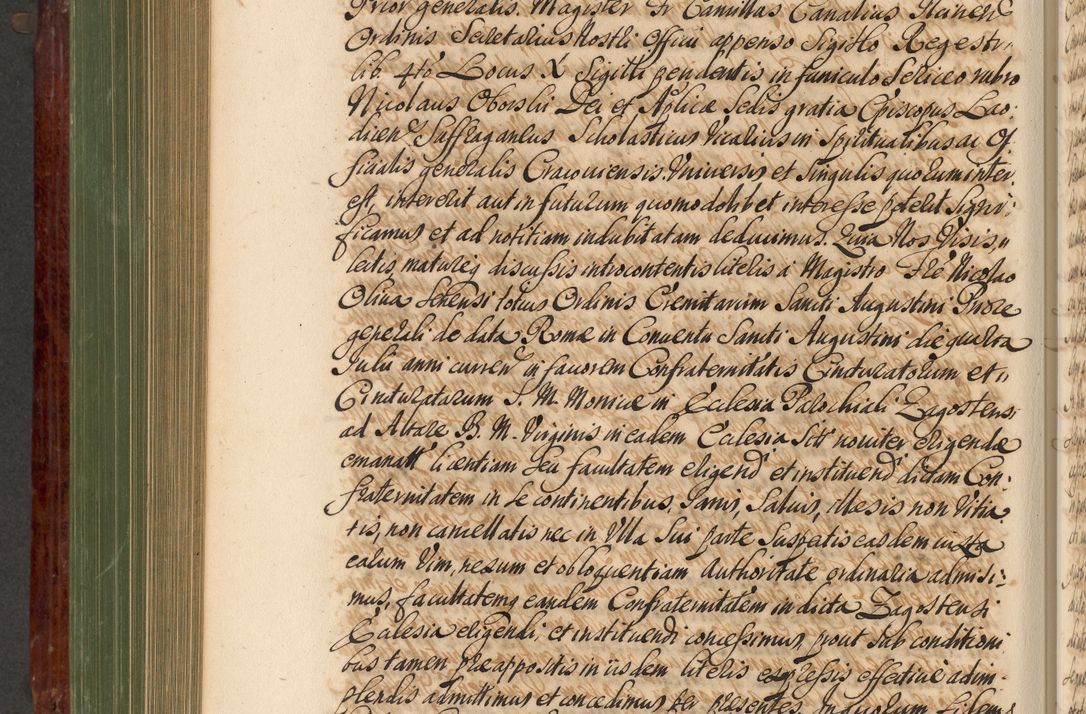 Prior generalis. Magister Fr Camillus Canalius
Ordinis Secretarius Nostri Officii appenso Sigillo Regestr:
lib. 4to Locus X Sigilli pendentis in funiculo Sericeo rubro
Nicolaus Oborski Dei et Aplicæ Sedis gratia Episcopus Lao-
dicen Suffraganeus Scholasticus Vicarius in Spiritualibus ac Of-
ficialis generalis Cracoviensis. Universis et Singulis quorum inter-
est, intererit aut in futurum quomodolibet interesse poterit Signi-
ficamus et ad notitiam indubitatam deducimus. Quia Nos Visis
lectis, matureq discussis introcontentis literis a Magistro Fre Nicolao
Oliva Senensi totius Ordinis Eremitarum Sancti Augustini Priore
generali de data Romæ in Conventu Sancti Augustini die quarta
Julii anni curren in favorem Confraternitatis Cincturatorum et
Cincturatarum S. M. Monicæ in Ecclesia Parochiali Zagostensi
ad Altare B. M. Virginis in eadem Ecclesia Sit noviter erigendæ
emanatt licentiam seu facultatem erigend et instituend dictam Con-
fraternitatem in se continentibus, Sanis, Salvis, illesis non Vitia-
tis, non cancellatis nec in Ulla Sui parte Suspectis easdem iuxta
earum Vim, nexum et obloquentiam Authoritate ordinaria admisi-
mus, facultatemq eandem Confraternitatem in dicta Zagostensi
Ecclesia erigendi et instituendi concessimus, prout Sub conditioni-
bus tamen præappositis in iisdem literis expressis effective adim-
plendis admittimus et concedimus per presentes. In quorum fidem